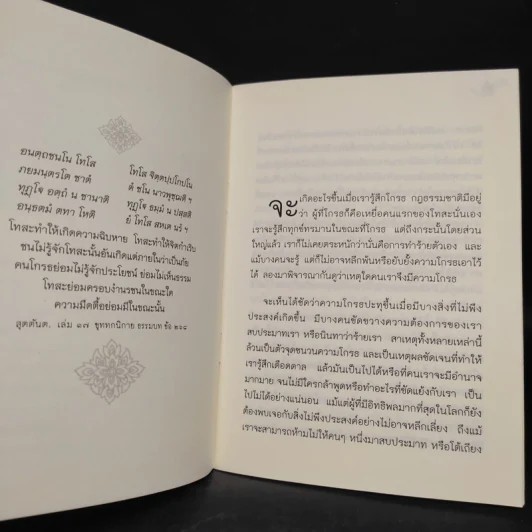 อนตฺถชนโน โทโส โทโส จิตฺตปฺปโกปโน
ภยมนฺตรโต ชาตํ ตํ ชโน นาวพุชฺฌติ ฯ
ทุฏฺโฐ อตฺถํ น ชานาติ ทุฏฺโฐ ธมฺมํ น ปสฺสติ
อนฺธตมํ ตทา โหติ ยํ โทโส สหเต นรํ ฯ
โทสะทำให้เกิดความฉิบหาย โทสะทำให้จิตกำเริบ
ชนไม่รู้จักโทสะนั้นอันเกิดแต่ภายในว่าเป็นภัย
คนโกรธย่อมไม่รู้จักประโยชน์ ย่อมไม่เห็นธรรม
โทสะย่อมครอบงำนรชนในขณะใด
ความมืดตื้อย่อมมีในขณะนั้น
สุตตันต. เล่ม ๑๗ ขุททกนิกาย
จะ เกิดอะไรขึ้นเมื่อเรารู้สึกโกรธ กฎธรรมชาติมีอยู่
ว่า ผู้ที่โกรธก็คือเหยื่อคนแรกของโทสะนั่นเอง
เราจะรู้สึกทุกข์ทรมานในขณะที่โกรธ แต่ถึงกระนั้นโดยส่วน
ใหญ่แล้ว เราก็ไม่เคยตระหนักว่านั่นคือการทำร้ายตัวเอง และ
แม้บางคนจะรู้ แต่ก็ไม่อาจหลีกพ้นหรือยับยั้งความโกรธเอาไว้
ได้ ลองมาพิจารณากันดูว่าเหตุใดคนเราจึงมีความโกรธ
จะเห็นได้ชัดว่าความโกรธปะทุขึ้นเมื่อมีบางสิ่งที่ไม่พึง
ประสงค์เกิดขึ้น มีบางคนขัดขวางความต้องการของเรา
สบประมาทเรา หรือนินทาว่าร้ายเรา สาเหตุทั้งหลายเหล่านี้
ล้วนเป็นตัวจุดชนวนความโกรธ และเป็นเหตุผลชัดเจนที่ทำให้
เรารู้สึกเดือดดาล แล้วมันเป็นไปได้หรือที่คนเราจะมีอำนาจ
มากมาย จนไม่มีใครกล้าพูดหรือทำอะไรที่ขัดแย้งกับเรา เป็น
ไปไม่ได้อย่างแน่นอน แม้แต่ผู้ที่มีอิทธิพลมากที่สุดในโลกก็ยัง
ต้องพบเจอกับสิ่งไม่พึงประสงค์อย่างไม่อาจหลีกเลี่ยง ถึงแม้
เราจะสามารถห้ามไม่ให้คนๆ หนึ่งมาสบประมาท หรือโต้เถียง